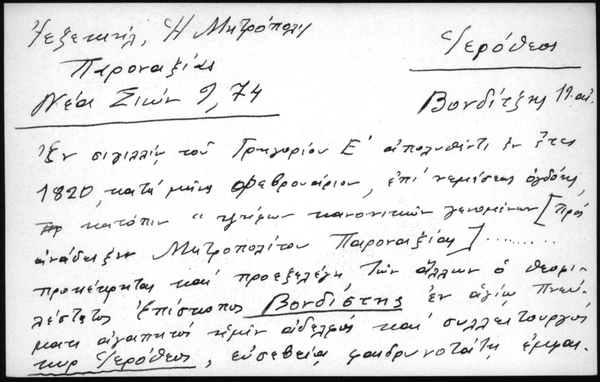 Ἰεζεκιήλ, Ἡ Μητρόπολις
Παροναξίας
Νέα Σιών 9, 74
Ἱερόθεος
Βονδίτζης 19. αἰ.
Ἐν σιγιλλίῳ τοῦ Γρηγορίου Ε' ἀπολυθέντι ἐν ἔτει
1820, κατὰ μῆνα Φεβρουάριον, ἐπινεμήσεως ὀγδόης
κατόπιν "ψήφων κανονικῶν γενομένων [πρὸς
ἀνάδειξιν Μητροπολίτου Παροναξίας] .........
προεκέκριται καὶ προεξελέγη τῶν ἄλλων ὁ θεοφι-
λέστατος Ἐπίσκοπος Βονδίστης ἐν ἁγίῳ Πνεύ-
ματι ἀγαπητὸς ἡμῖν ἀδελφὸς καὶ συλλειτουργὸς
κυρ Ἱερόθεος, εὐσεβείᾳ φαιδρυνοτάτῃ ἐμπρε-